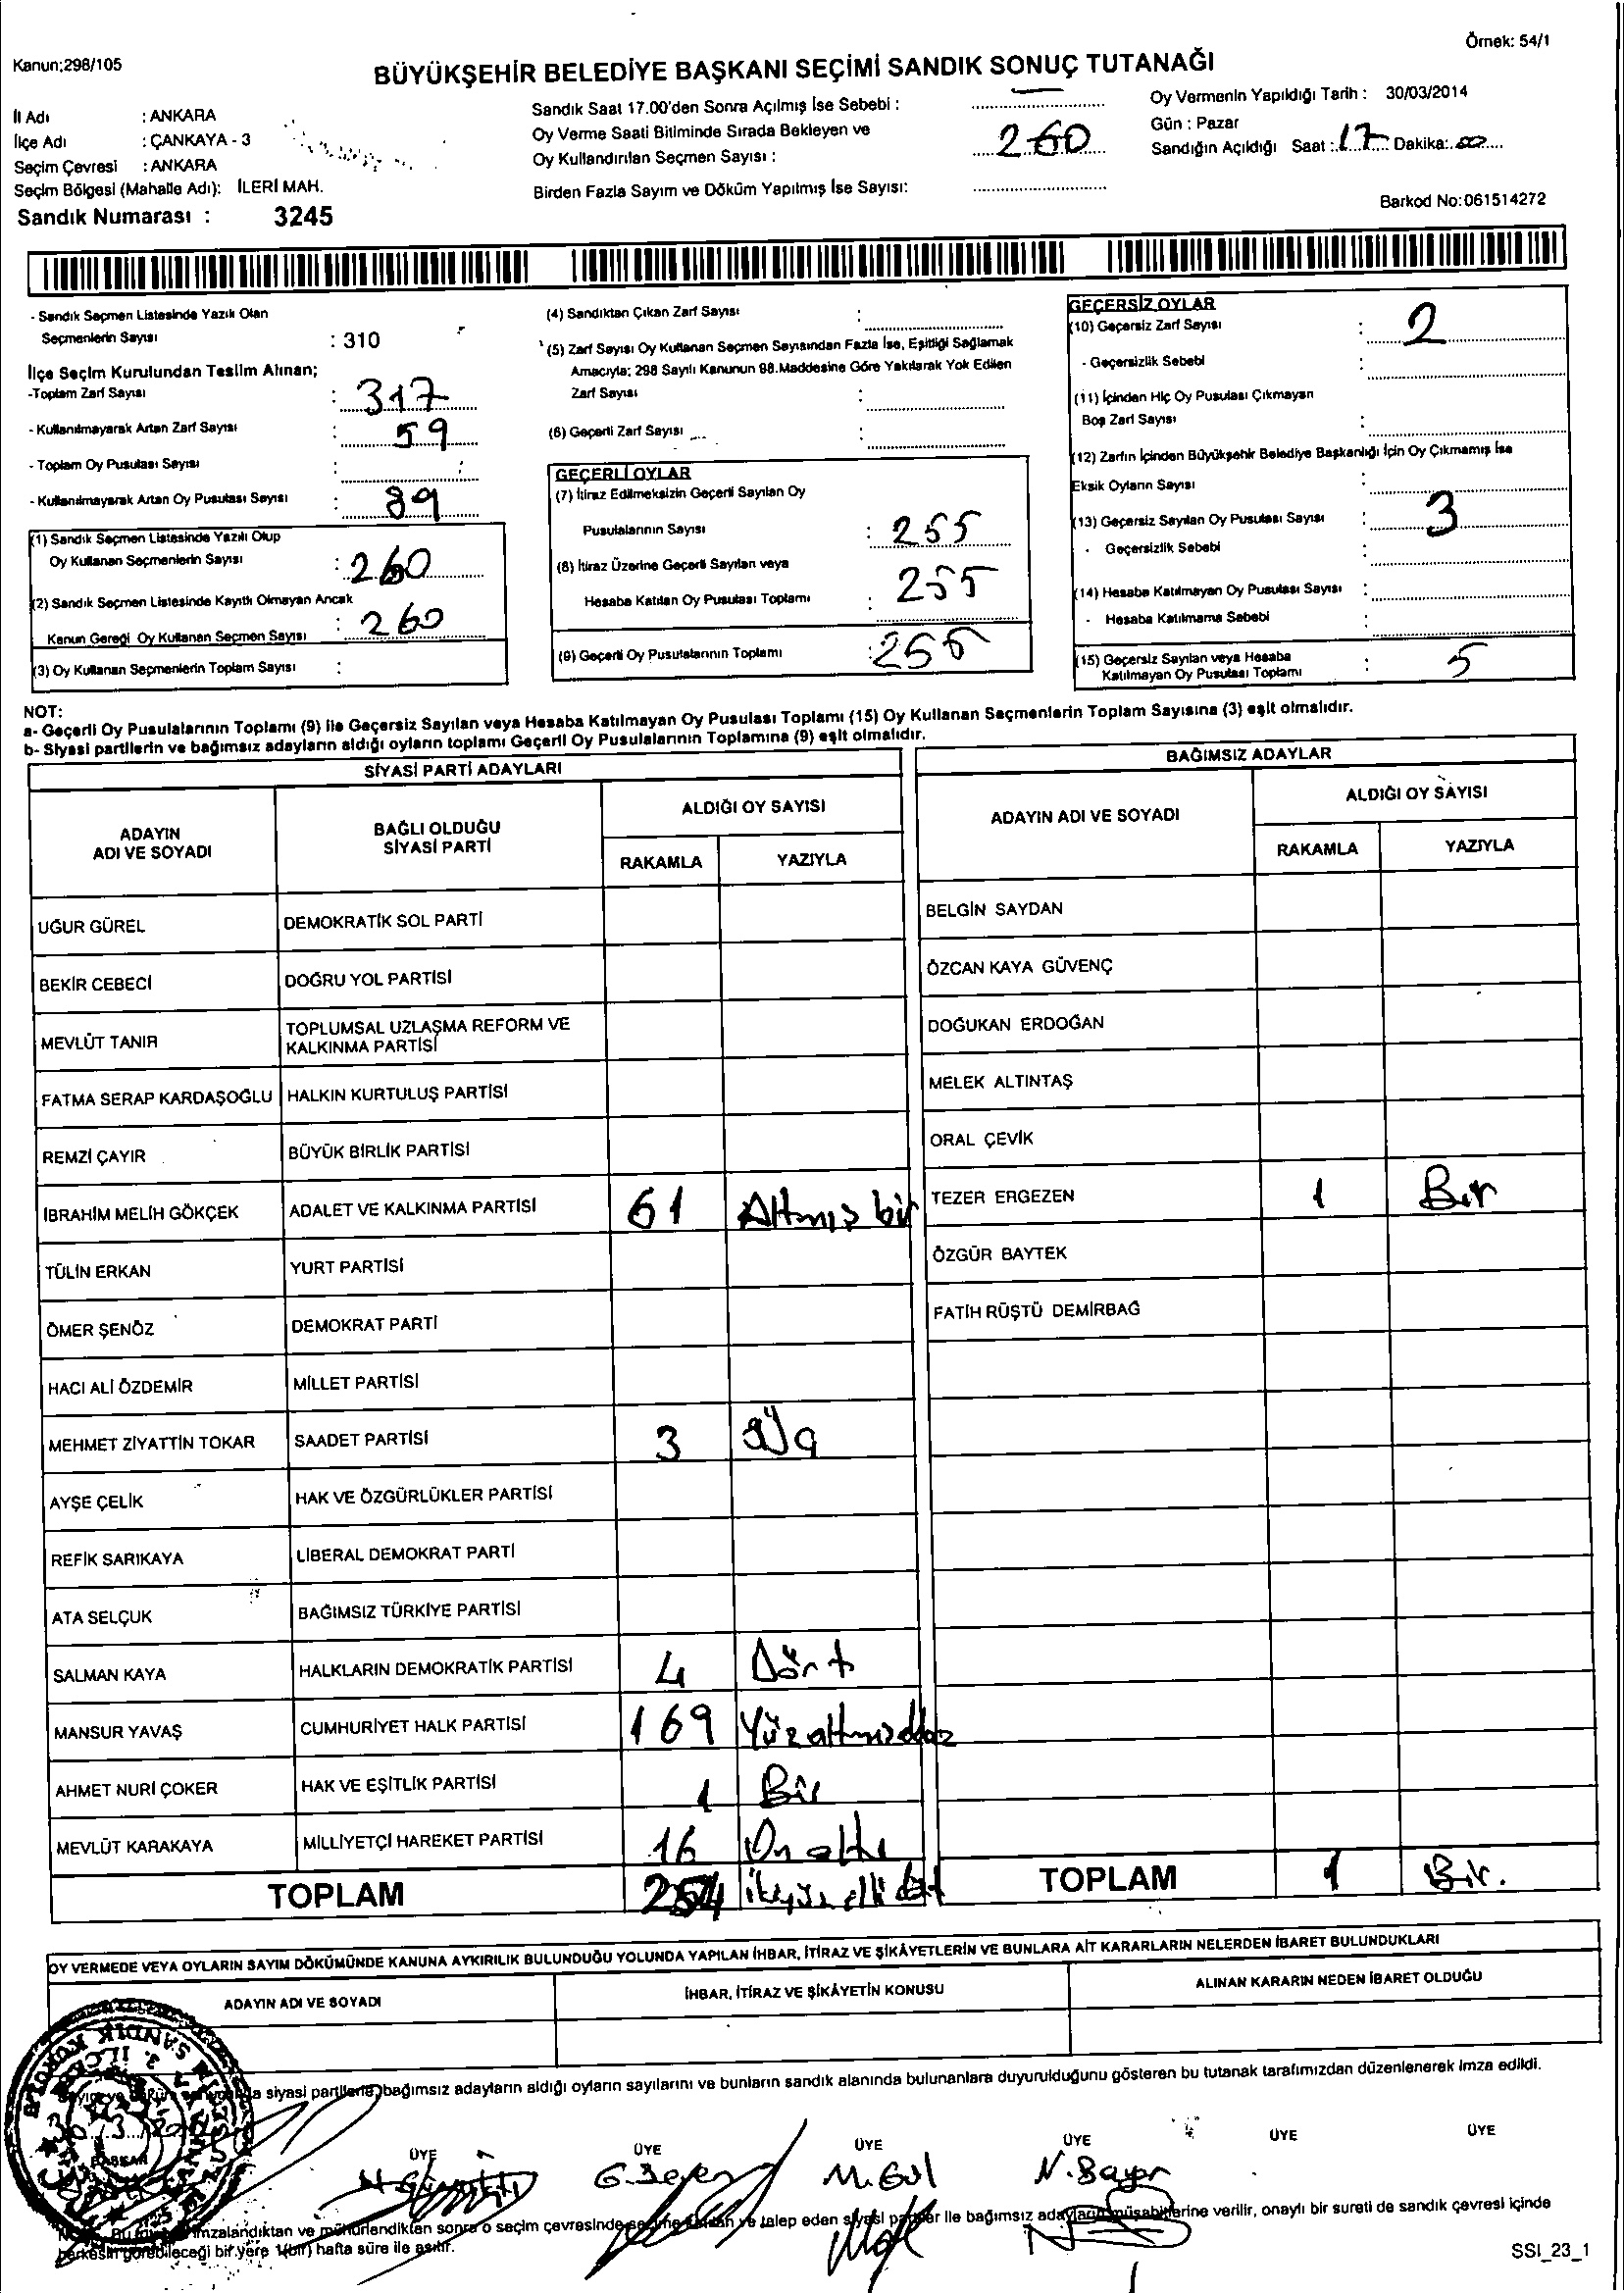 Örnek: 54/1
Kanun;298/105
BÜYÜKŞEHİR BELEDİYE BAŞKANI SEÇİMİ SANDIK SONUÇ TUTANAĞI
İl Adı : ANKARA
İlçe Adı : ÇANKAYA - 3
Seçim Çevresi : ANKARA
Seçim Bölgesi (Mahalle Adı): İLERİ MAH.
Sandık Numarası : 3245
Sandık Saat 17.00'den Sonra Açılmış İse Sebebi :
Oy Verme Saati Bitiminde Sırada Bekleyen ve
Oy Kullandırılan Seçmen Sayısı : 260
Birden Fazla Sayım ve Döküm Yapılmış İse Sayısı:
Oy Vermenin Yapıldığı Tarih : 30/03/2014
Gün : Pazar
Sandığın Açıldığı Saat : 17 Dakika: 00
Barkod No:061514272
- Sandık Seçmen Listesinde Yazılı Olan
Seçmenlerin Sayısı : 310
İlçe Seçim Kurulundan Teslim Alınan;
-Toplam Zarf Sayısı : 317
- Kullanılmayarak Artan Zarf Sayısı : 59
- Toplam Oy Pusulası Sayısı :
- Kullanılmayarak Artan Oy Pusulası Sayısı : 89
(1) Sandık Seçmen Listesinde Yazılı Olup
Oy Kullanan Seçmenlerin Sayısı : 260
(2) Sandık Seçmen Listesinde Kayıtlı Olmayan Ancak
Kanun Gereği Oy Kullanan Seçmen Sayısı : 260
(3) Oy Kullanan Seçmenlerin Toplam Sayısı :
(4) Sandıktan Çıkan Zarf Sayısı :
(5) Zarf Sayısı Oy Kullanan Seçmen Sayısından Fazla İse, Eşitliği Sağlamak
Amacıyla; 298 Sayılı Kanunun 98.Maddesine Göre Yakılarak Yok Edilen
Zarf Sayısı :
(6) Geçerli Zarf Sayısı :
GEÇERLİ OYLAR
(7) İtiraz Edilmeksizin Geçerli Sayılan Oy
Pusulalarının Sayısı : 255
(8) İtiraz Üzerine Geçerli Sayılan veya
Hesaba Katılan Oy Pusulası Toplamı : 255
(9) Geçerli Oy Pusulalarının Toplamı : 255
GEÇERSİZ OYLAR
(10) Geçersiz Zarf Sayısı : 2
- Geçersizlik Sebebi :
(11) İçinden Hiç Oy Pusulası Çıkmayan
Boş Zarf Sayısı :
(12) Zarfın İçinden Büyükşehir Belediye Başkanlığı İçin Oy Çıkmamış İse
Eksik Oyların Sayısı :
(13) Geçersiz Sayılan Oy Pusulası Sayısı : 3
- Geçersizlik Sebebi :
(14) Hesaba Katılmayan Oy Pusulası Sayısı :
- Hesaba Katılmama Sebebi :
(15) Geçersiz Sayılan veya Hesaba
Katılmayan Oy Pusulası Toplamı : 5
NOT:
a- Geçerli Oy Pusulalarının Toplamı (9) ile Geçersiz Sayılan veya Hesaba Katılmayan Oy Pusulası Toplamı (15) Oy Kullanan Seçmenlerin Toplam Sayısına (3) eşit olmalıdır.
b- Siyasi partilerin ve bağımsız adayların aldığı oyların toplamı Geçerli Oy Pusulalarının Toplamına (9) eşit olmalıdır.
SİYASİ PARTİ ADAYLARI
ADAYIN ADI VE SOYADI BAĞLI OLDUĞU SİYASİ PARTİ ALDIĞI OY SAYISI
RAKAMLA YAZIYLA
UĞUR GÜREL DEMOKRATİK SOL PARTİ
BEKİR CEBECİ DOĞRU YOL PARTİSİ
MEVLÜT TANIR TOPLUMSAL UZLAŞMA REFORM VE KALKINMA PARTİSİ
FATMA SERAP KARDAŞOĞLU HALKIN KURTULUŞ PARTİSİ
REMZİ ÇAYIR BÜYÜK BİRLİK PARTİSİ
İBRAHİM MELİH GÖKÇEK ADALET VE KALKINMA PARTİSİ 61 Altmış bir
TÜLİN ERKAN YURT PARTİSİ
ÖMER ŞENÖZ DEMOKRAT PARTİ
HACI ALİ ÖZDEMİR MİLLET PARTİSİ
MEHMET ZİYATTİN TOKAR SAADET PARTİSİ 3 Üç
AYŞE ÇELİK HAK VE ÖZGÜRLÜKLER PARTİSİ
REFİK SARIKAYA LİBERAL DEMOKRAT PARTİ
ATA SELÇUK BAĞIMSIZ TÜRKİYE PARTİSİ
SALMAN KAYA HALKLARIN DEMOKRATİK PARTİSİ 4 Dört
MANSUR YAVAŞ CUMHURİYET HALK PARTİSİ 169 Yüzaltmışdokuz
AHMET NURİ ÇOKER HAK VE EŞİTLİK PARTİSİ 1 Bir
MEVLÜT KARAKAYA MİLLİYETÇİ HAREKET PARTİSİ 16 On altı
TOPLAM 254 ikiyüz elli dört
BAĞIMSIZ ADAYLAR
ADAYIN ADI VE SOYADI ALDIĞI OY SAYISI
RAKAMLA YAZIYLA
BELGİN SAYDAN
ÖZCAN KAYA GÜVENÇ
DOĞUKAN ERDOĞAN
MELEK ALTINTAŞ
ORAL ÇEVİK
TEZER ERGEZEN 1 Bir
ÖZGÜR BAYTEK
FATİH RÜŞTÜ DEMİRBAĞ
TOPLAM 1 Bir.
OY VERMEDE VEYA OYLARIN SAYIM DÖKÜMÜNDE KANUNA AYKIRILIK BULUNDUĞU YOLUNDA YAPILAN İHBAR, İTİRAZ VE ŞİKÂYETLERİN VE BUNLARA AİT KARARLARIN NELERDEN İBARET BULUNDUKLARI
ADAYIN ADI VE SOYADI İHBAR, İTİRAZ VE ŞİKÂYETİN KONUSU ALINAN KARARIN NEDEN İBARET OLDUĞU
siyasi partilerle, bağımsız adayların aldığı oyların sayılarını ve bunların sandık alanında bulunanlara duyurulduğunu gösteren bu tutanak tarafımızdan düzenlenerek imza edildi.
BAŞKAN ÜYE ÜYE ÜYE ÜYE ÜYE ÜYE
M. Gül
imzalandıktan ve mühürlendikten sonra o seçim çevresinde talep eden siyasi partiler ile bağımsız adayların müşahitlerine verilir, onaylı bir sureti de sandık çevresi içinde
herkesin görebileceği bir yere 1(bir) hafta süre ile asılır.
SSI_23_1